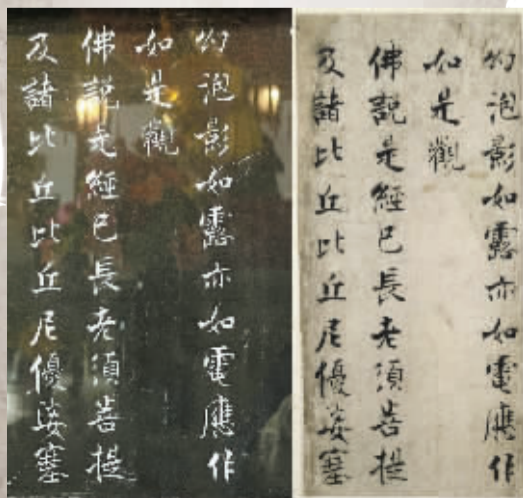 幻泡影如露亦如電應作
如是觀
佛説是經已長老須菩提
及諸比丘比丘尼優婆塞
幻泡影如露亦如電應作
如是觀
佛説是經已長老須菩提
及諸比丘比丘尼優婆塞